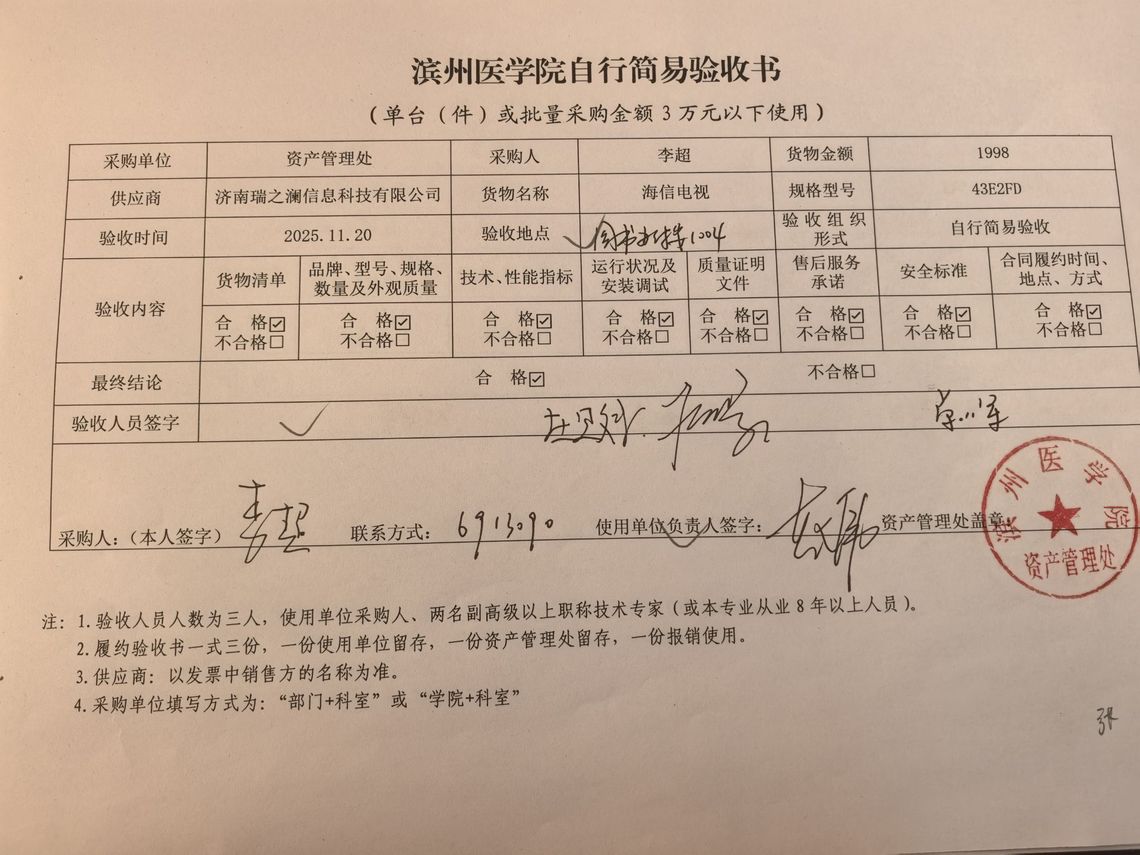 滨州医学院自行简易验收书
(单台(件)或批量采购金额3万元以下使用)
采购单位 资产管理处 采购人 李超 货物金额 1998
供应商 济南瑞之澜信息科技有限公司 货物名称 海信电视 规格型号 43E2FD
验收时间 2025.11.20 验收地点 1004 验收组织形式 自行简易验收
验收内容 货物清单 品牌、型号、规格、数量及外观质量 技术、性能指标 运行状况及安装调试 质量证明文件 售后服务承诺 安全标准 合同履约时间、地点、方式
合 格☑ 合 格☑ 合 格☑ 合 格☑ 合 格☑ 合 格☑ 合 格☑ 合 格☑
不合格☐ 不合格☐ 不合格☐ 不合格☐ 不合格☐ 不合格☐ 不合格☐ 不合格☐
最终结论 合 格☑ 不合格☐
验收人员签字
采购人:(本人签字) 李超 联系方式: 6913090 使用单位负责人签字: 资产管理处盖章:
滨州医学院
资产管理处
注: 1.验收人员人数为三人,使用单位采购人、两名副高级以上职称技术专家(或本专业从业8年以上人员)。
2.履约验收书一式三份,一份使用单位留存,一份资产管理处留存,一份报销使用。
3.供应商:以发票中销售方的名称为准。
4.采购单位填写方式为:“部门+科室”或“学院+科室”
张